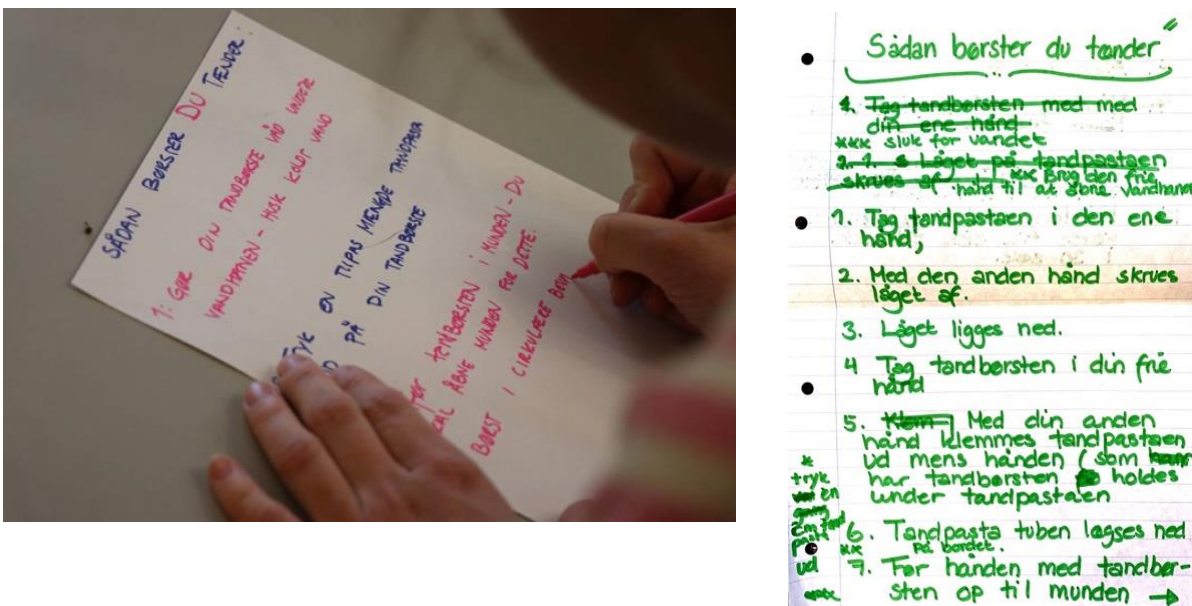 SÅDAN BØRSTER DU TÆNDER:
1: GØR DIN TANDBØRSTE VÅD UNDER
VANDHANEN - HUSK KOLDT VAND
TRYK EN TILPAS MENGDE TANDPASTA
PÅ DIN TANDBØRSTE
TANDBØRSTEN I MUNDEN - DU
SKAL ÅBNE MUNDEN FOR DETTE.
BØRST I CIRKULÆRE BEV
Sådan børster du tænder
1. Tag tandbørsten med med
din ene hånd
xxx sluk for vandet
2. 1. Låget på tandpastaen
skrues af xx Brug den frie
hånd til at åbne vandhanen
1. Tag tandpastaen i den ene
hånd,
2. Med den anden hånd skrues
låget af.
3. Låget ligges ned.
4 Tag tandbørsten i din frie
hånd
5. Klem Med din anden
hånd klemmes tandpastaen
ud mens hånden (som
har tandbørsten holdes
under tandpastaen
*
tryk
en
cm tand
pasta
ud
6. Tandpasta tuben lægses ned
xx på bordet.
7. Før hånden med tandbør-
sten op til munden →